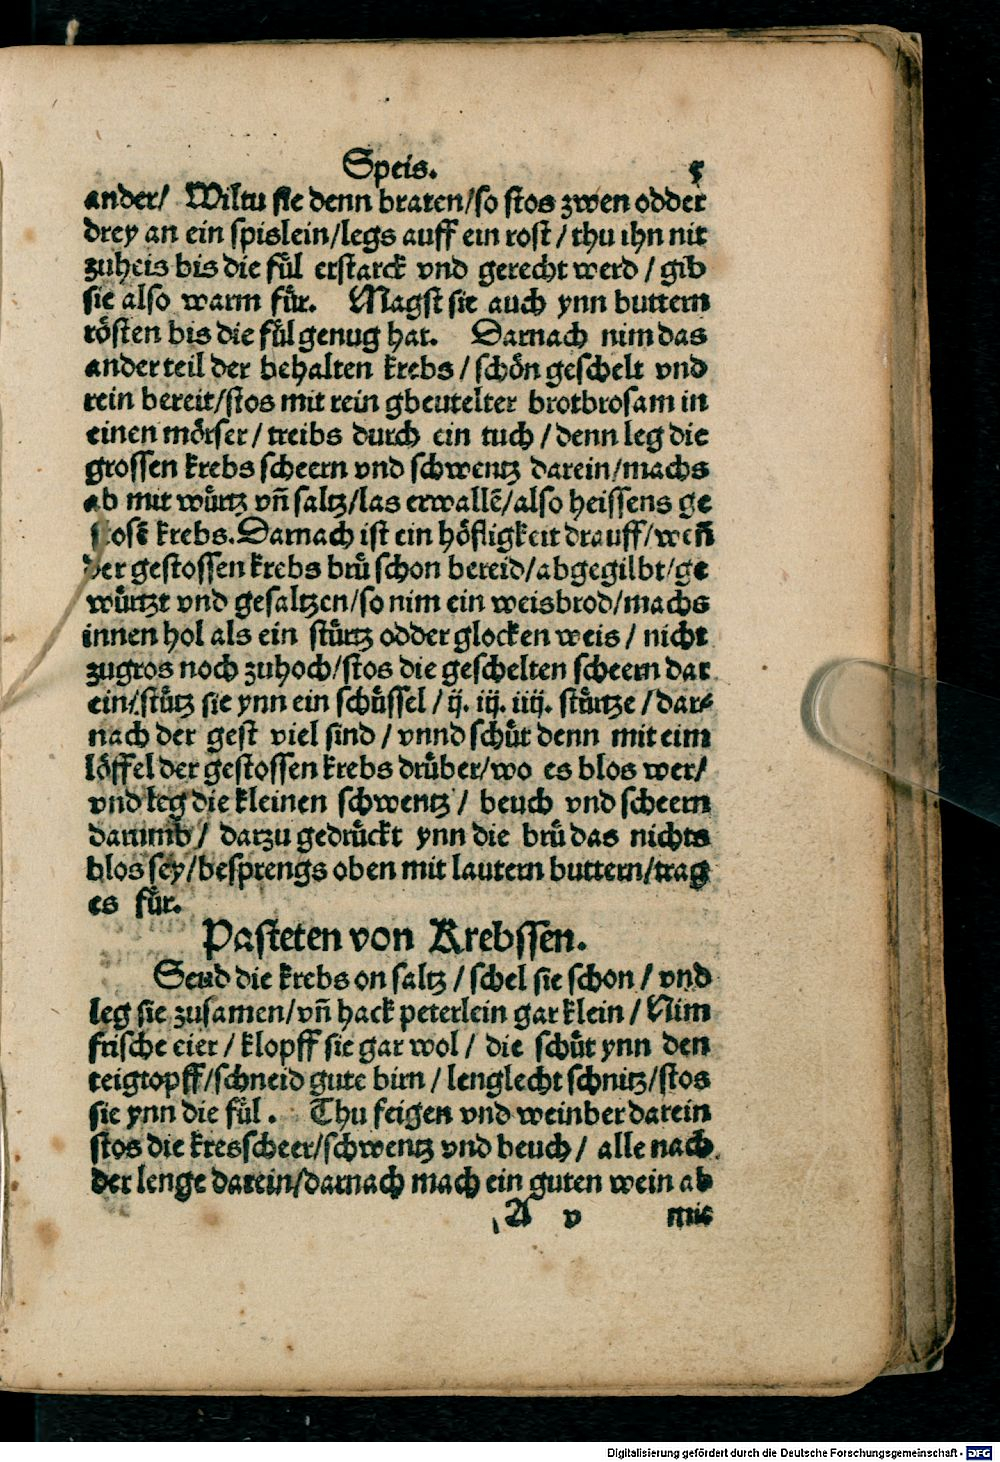 Speis. 5
ander/ Wiltu sie denn braten/so stos zwen odder
drey an ein spislein/legs auff ein rost/thu ihn nit
zuheis bis die fůl erstarck vnd gerecht werd/gib
sie also warm fůr. Magst sie auch ynn buttern
rösten bis die fůl genug hat. Darnach nim das
ander teil der behalten krebs/schön geschelt vnd
rein bereit/stos mit rein gbeutelter brotbrosam in
einen mörser/treibs durch ein tuch/denn leg die
grossen krebs scheern vnd schwentz darein/machs
ab mit wůrtz vñ saltz/las erwallẽ/also heissens ge
stosẽ krebs. Darnach ist ein höfligkeit drauff/weñ
der gestossen krebs brů schon bereid/abgegilbt/ge
wůrtzt vnd gesaltzen/so nim ein weisbrod/machs
innen hol als ein stůrtz odder glocken weis/nicht
zugros noch zuhoch/stos die geschelten scheern dar
ein/stůtz sie ynn ein schůssel/ij. iij. iiij. stůrtze/dar⸗
nach der gest viel sind/vnnd schůt denn mit eim
löffel der gestossen krebs drůber/wo es blos wer/
vnd leg die kleinen schwentz/beuch vnd scheern
darumb/darzu gedrůckt ynn die brů das nichts
blos sey/besprengs oben mit lautern buttern/trag
es fůr.
Pasteten von Krebssen.
Seud die krebs on saltz/schel sie schon/vnd
leg sie zusamen/vñ hack peterlein gar klein/Nim
frische eier/klopff sie gar wol/die schůt ynn den
teigtopff/schneid gute birn/lenglecht schnitz/stos
sie ynn die fůl. Thu feigen vnd weinber darein
stos die kresscheer/schwentz vnd beuch/alle nach
der lenge darein/darnach mach ein guten wein ab
A v mit
Digitalisierung gefördert durch die Deutsche Forschungsgemeinschaft - DFG